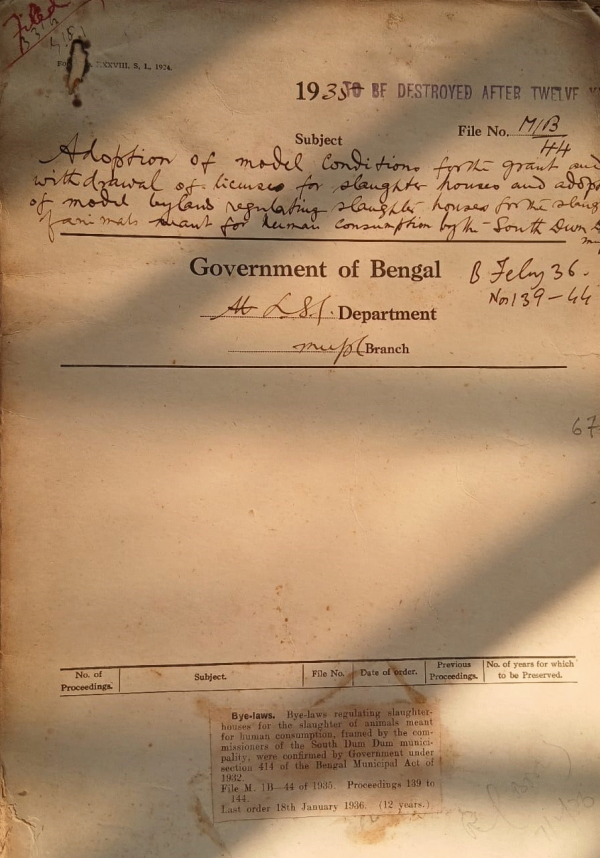 Filed
XXVIII, S, L, 1924.
1935 TO BE DESTROYED AFTER TWELVE
Subject
File No. M/1B
44
Adoption of model conditions for the grant and
withdrawal of licenses for slaughter houses and
of model byelaws regulating slaughter houses for the
of animals meant for human consumption by the South Dum
Government of Bengal
B Feby 36.
Nos 139-44
L. S. G. Department
Branch
67
No. of Proceedings.
Subject.
File No.
Date of order.
Previous Proceedings.
No. of years for which to be Preserved.
Bye-laws. Bye-laws regulating slaughter-
houses for the slaughter of animals meant
for human consumption, framed by the com-
missioners of the South Dum Dum munici-
pality, were confirmed by Government under
section 414 of the Bengal Municipal Act of
1932.
File M. 1B—44 of 1935. Proceedings 139 to
144.
Last order 18th January 1936. (12 years.)